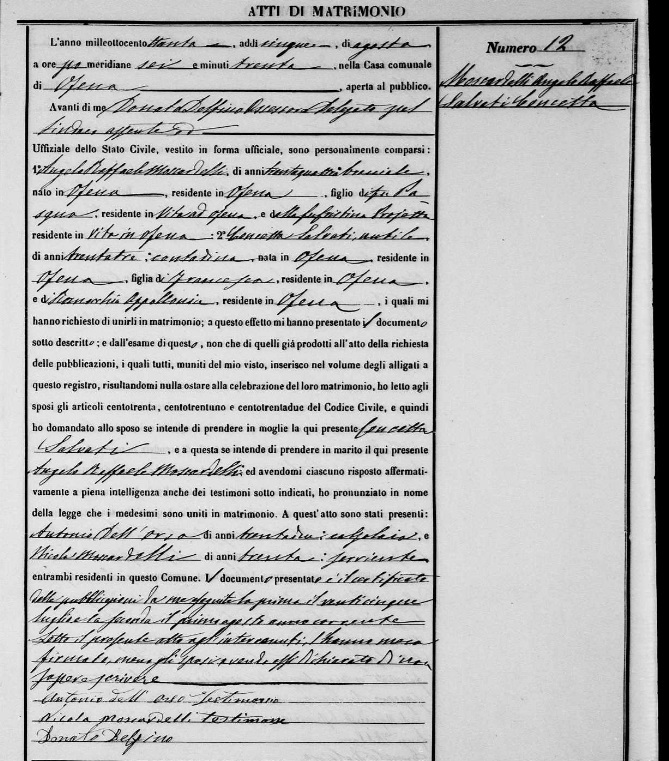 ATTI DI MATRIMONIO
L'anno milleottocento ttanta, addi cinque, di agosto
a ore po meridiane sei e minuti trenta, nella Casa comunale
di Ofena, aperta al pubblico.
Avanti di me Donato Delfino Assessore delegato pel
Sindaco assente ed
Uffiziale dello Stato Civile, vestito in forma uffiziale, sono personalmente comparsi:
1° Angelo Raffaele Moscardelli, di anni trentaquattro bracciale,
nato in Ofena, residente in Ofena, figlio di fu Pa-
squa, residente in Vita ad Ofena, e di
residente in Vita in Ofena: 2° Concetta Salvati, nubile,
di anni trentatre: contadina, nata in Ofena, residente in
Ofena, figlia di Francesco, residente in Ofena,
e di Appollonia, residente in Ofena, i quali mi
hanno richiesto di unirli in matrimonio; a questo effetto mi hanno presentato il documento
sotto descritto; e dall'esame di questo, non che di quelli già prodotti all'atto della richiesta
delle pubblicazioni, i quali tutti, muniti del mio visto, inserisco nel volume degli alligati a
questo registro, risultandomi nulla ostare alla celebrazione del loro matrimonio, ho letto agli
sposi gli articoli centotrenta, centotrentuno e centotrentadue del Codice Civile, e quindi
ho domandato allo sposo se intende di prendere in moglie la qui presente Concetta
Salvati, e a questa se intende di prendere in marito il qui presente
Angelo Raffaele Moscardelli, ed avendomi ciascuno risposto affermati-
vamente a piena intelligenza anche dei testimoni sotto indicati, ho pronunziato in nome
della legge che i medesimi sono uniti in matrimonio. A quest'atto sono stati presenti:
Antonio Dell'Orso di anni trentadue: calzolaio, e
Nicola Moscardelli di anni trenta: serviente
entrambi residenti in questo Comune. Il documento presentato è il certificato
delle pubblicazioni da me eseguite la prima il venticinque
luglio e la seconda il primo agosto anno corrente
Letto il presente atto agli intervenuti, l'hanno meco
firmato, meno gli sposi avendo essi dichiarato di non
sapere scrivere
Antonio dell'Orso testimonio
Nicola Moscardelli testimone
Donato Delfino
Numero 12
Moscardelli Angelo Raffaele
Salvati Concetta